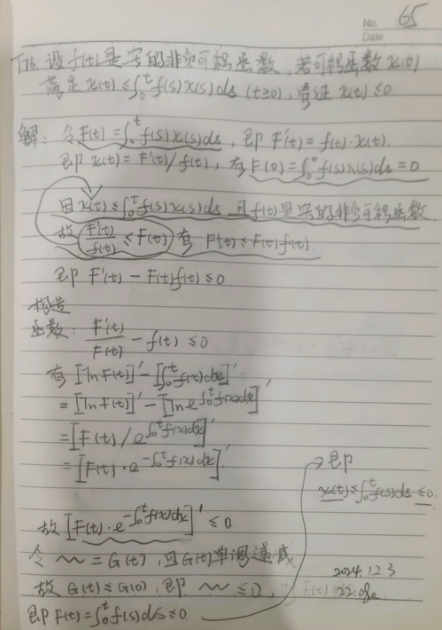 No. 65
Date
T76. 设f(t)是字的非负可积函数,若可积函数x(t)
满足x(t)≤∫₀ᵗf(s)x(s)ds (t≥0),皆证 x(t)≤0
解:令F(t)=∫₀ᵗf(s)x(s)ds,即F'(t)=f(t)·x(t).
即x(t)=F'(t)/f(t),有F(0)=∫₀⁰f(s)x(s)ds=0
因x(t)≤∫₀ᵗf(s)x(s)ds 且f(t)是字的非负可积函数
故 F'(t)/f(t) ≤F(t) 有 F'(t)≤F(t)f(t).
即 F'(t)-F(t)f(t)≤0
构造
函数: F'(t)/F(t) - f(t) ≤0
有 [lnF(t)]'-[∫₀ᵗf(x)dx]'
=[lnF(t)]'-[ln e^∫₀ᵗf(x)dx]'
=[F(t)/e^∫₀ᵗf(x)dx]'
=[F(t)·e^-∫₀ᵗf(x)dx]'.
故[F(t)·e^-∫₀ᵗf(x)dx]'≤0
令 〰 =G(t),且G(t)单调递减
故 G(t)≤G(0),即 〰 ≤0,
即F(t)=∫₀ᵗf(s)ds≤0
→即
x(t)≤∫₀ᵗf(s)ds≤0.
2024.12.3